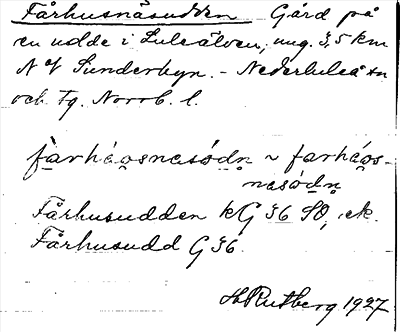 Fårhusnäsudden Gård på
en udde i Luleälven, ung. 3,5 km
NV Sunderbyn. - Nederluleå sn
och Tg. Norrb. l.
fårhåǫsnæsødn̥ ~ farhåǫs-
næsødn̥
Fårhusudden kG 36 SO, ek.
Fårhusudd G 36.
H Rutberg 1927